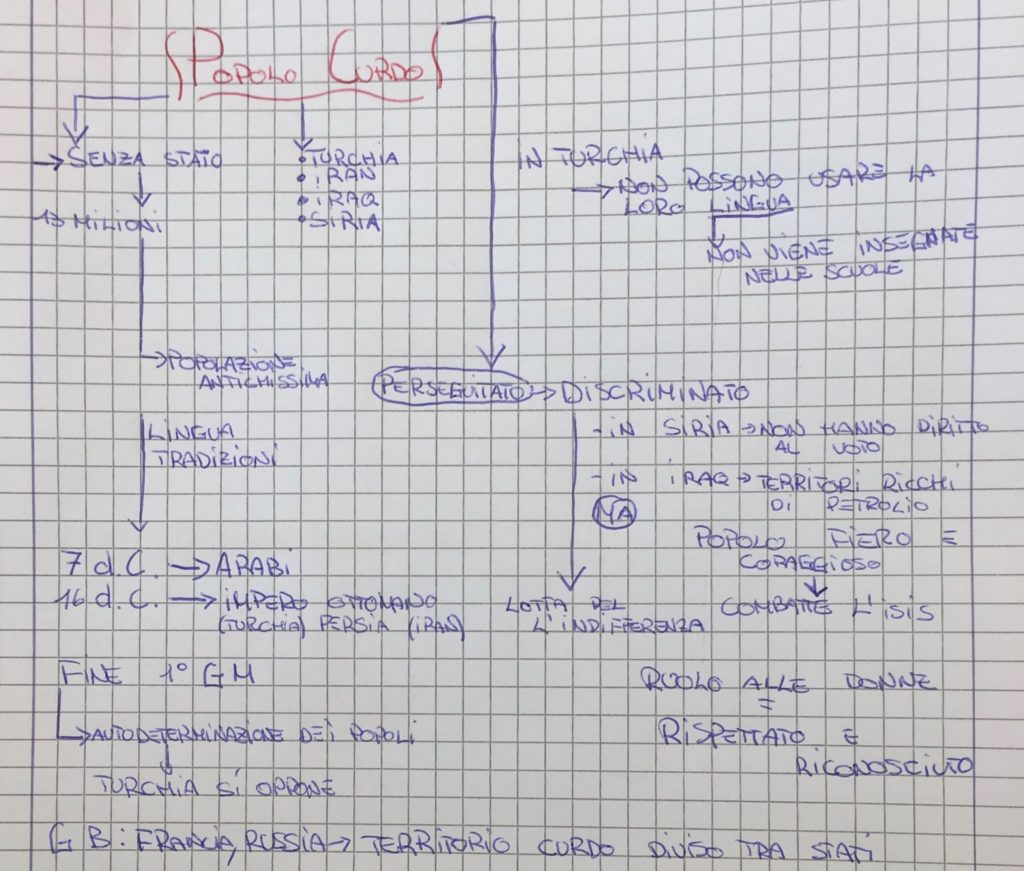 POPOLO CURDO
→ SENZA STATO
13 MILIONI
• TURCHIA
• IRAN
• IRAQ
• SIRIA
IN TURCHIA
→ NON POSSONO USARE LA
LORO LINGUA
NON VIENE INSEGNATE
NELLE SCUOLE
→ POPOLAZIONE
ANTICHISSIMA
LINGUA
TRADIZIONI
7 d.C. → ARABI
16 d.C. → IMPERO OTTOMANO
(TURCHIA) PERSIA (IRAN)
PERSEGUITATO → DISCRIMINATO
- IN SIRIA → NON HANNO DIRITTO
AL VOTO
- IN IRAQ → TERRITORI RICCHI
DI PETROLIO
MA
POPOLO FIERO E
CORAGGIOSO
COMBATTE L'ISIS
LOTTA DEL
L'INDIFFERENZA
RUOLO ALLE DONNE
=
RISPETTATO E
RICONOSCIUTO
FINE 1° GM
→ AUTODETERMINAZIONE DEI POPOLI
TURCHIA SI OPPONE
G B: FRANCIA, RUSSIA → TERRITORIO CURDO DIVISO TRA STATI